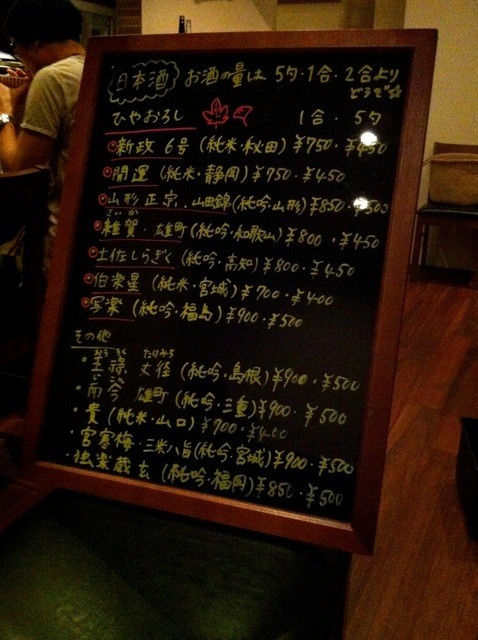 日本酒 お酒の量は 5勺・1合・2合より
どうぞ☆
ひやおろし 1合・5勺
新政 6号 (純米・秋田) ¥750・¥450
開運 (純米・静岡) ¥750・¥450
山形正宗・山田錦 (純吟・山形) ¥850・¥500
さいか
雑賀・雄町 (純吟・和歌山) ¥800・¥450
土佐しらぎく (純吟・高知) ¥800・¥450
伯楽星 (純米・宮城) ¥700・¥400
写楽 (純吟・福島) ¥900・¥500
その他
・王祿 丈径 (純吟・島根) ¥900・¥500
・而今 雄町 (純吟・三重) ¥900・¥500
・貴 (純米・山口) ¥700・¥400
・宮寒梅・三米八旨 (純吟・宮城) ¥900・¥500
・独楽蔵 玄 (純吟・福岡) ¥850・¥500